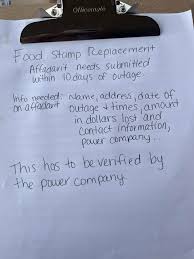 Officemate
Food Stamp Replacement
Affadavit needs submitted
within 10 days of outage.
Info needed: Name, address, date of
on affadavit outage & times, amount
in dollars lost and
contact information,
power company...
This has to be verified by
the power company.